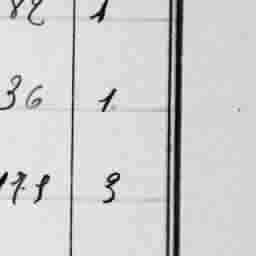 82 1
36 1
179 3